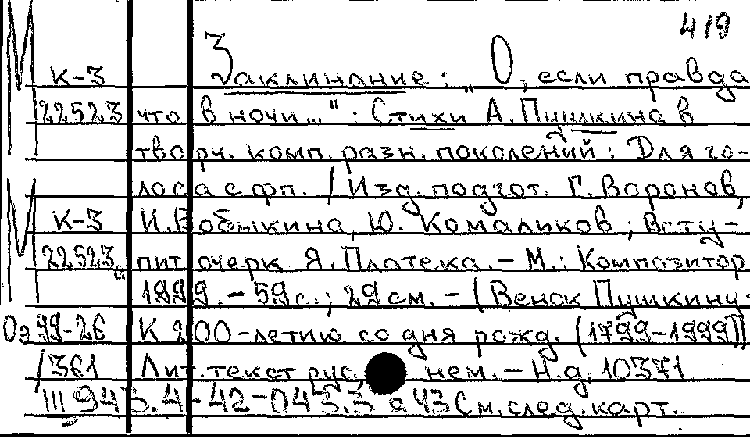 419
К-3 Заклинание: "О, если правда
22523 что в ночи..." : Стихи А. Пушкина в
творч. комп. разн. поколений : Для го-
лоса с фп. / Изд. подгот. Г. Воронов,
К-3 И. Бобыкина, Ю. Комальков; Всту-
22523а пит. очерк Я. Платека. - М.: Композитор
1999. - 59 с.; 29 см. - (Венок Пушкину.
Оэ 99-26 К 200-летию со дня рожд. (1799-1999))
/361 Лит. текст рус., нем. - Н.д. 10371
III 943.4-42-043.3 а ЧЗ См. след. карт.